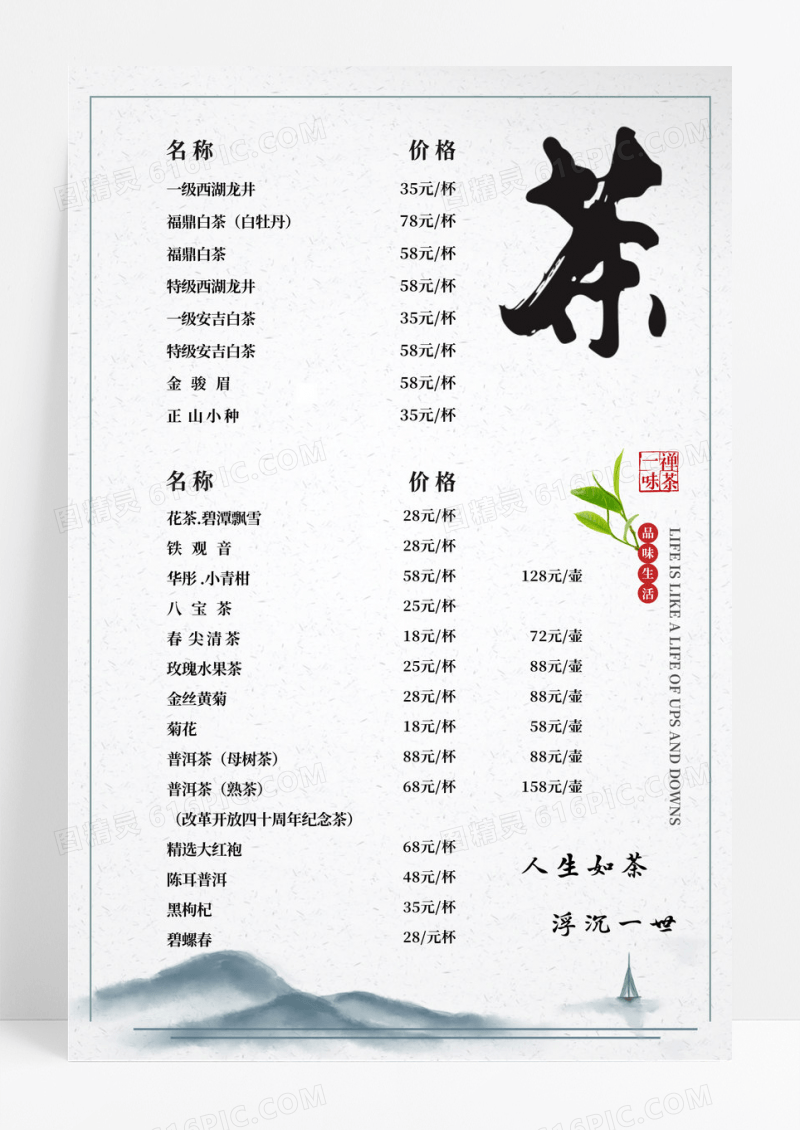 茶
名称 价格
一级西湖龙井 35元/杯
福鼎白茶（白牡丹） 78元/杯
福鼎白茶 58元/杯
特级西湖龙井 58元/杯
一级安吉白茶 35元/杯
特级安吉白茶 58元/杯
金骏眉 58元/杯
正山小种 35元/杯
名称 价格
花茶.碧潭飘雪 28元/杯
铁观音 28元/杯
华彤.小青柑 58元/杯 128元/壶
八宝茶 25元/杯
春尖清茶 18元/杯 72元/壶
玫瑰水果茶 25元/杯 88元/壶
金丝黄菊 28元/杯 88元/壶
菊花 18元/杯 58元/壶
普洱茶（母树茶） 88元/杯 88元/壶
普洱茶（熟茶） 68元/杯 158元/壶
（改革开放四十周年纪念茶）
精选大红袍 68元/杯
陈耳普洱 48元/杯
黑枸杞 35元/杯
碧螺春 28/元杯
禅茶
一味
品味生活
LIFE IS LIKE A LIFE OF UPS AND DOWNS
人生如茶
浮沉一世
图精灵 616PIC.COM